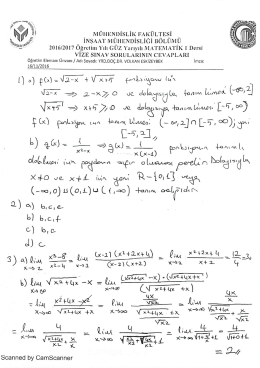 MÜHENDİSLİK FAKÜLTESİ
İNŞAAT MÜHENDİSLİĞİ BÖLÜMÜ
2016/2017 Öğretim Yılı GÜZ Yarıyılı MATEMATİK 1 Dersi
VİZE SINAV SORULARININ CEVAPLARI
Öğretim Elemanı Ünvanı / Adı Soyadı: YRD.DOÇ.DR. VOLKAN ESKİZEYBEK İmza:
1) a) f(x) = √2-x + √x+5 fonksiyonu için
√2-x → 2-x ≥ 0 ve dolayısıyla tanım kümesi (-∞, 2]
√x+5 → x+5 ≥ 0 ve dolayısıyla tanım kümesi [-5, ∞)
f(x) fonksiyonu için tanım kümesi (-∞,2] ∩ [-5, ∞); yani
[-5, 2],
b) g(x) = 1/(x²-x) → g(x) = 1/(x(x-1)) fonksiyonun tanımlı
olabilmesi için paydanın sıfır olmaması gerekir. Dolayısıyla
x ≠ 0 ve x ≠ 1 için yani R - {0,1} veya
(-∞,0) ∪ (0,1) ∪ (1,∞) tanım aralığıdır.
2) a) b, c, e
b) b, c, f
c) b, c
d) c
3) a) lim x→2 (x³-8)/(x²-4) = lim x→2 (x-2)(x²+2x+4)/((x-2)(x+2)) = lim x→2 (x²+2x+4)/(x+2) = 12/4 = 3
b) lim x→∞ √x²+4x - x = lim x→∞ (√x²+4x - x)·(√x²+4x + x)/(√x²+4x + x)
= lim x→∞ (x²+4x-x²)/(√x²+4x + x) = lim x→∞
= 2
Scanned by CamScanner